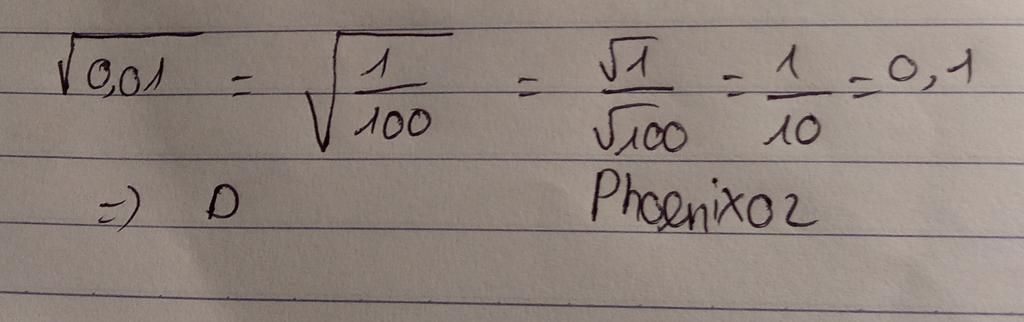 √0,01 = √(1/100) = √1/√100 = 1/10 = 0,1
=) D Phoenixo2